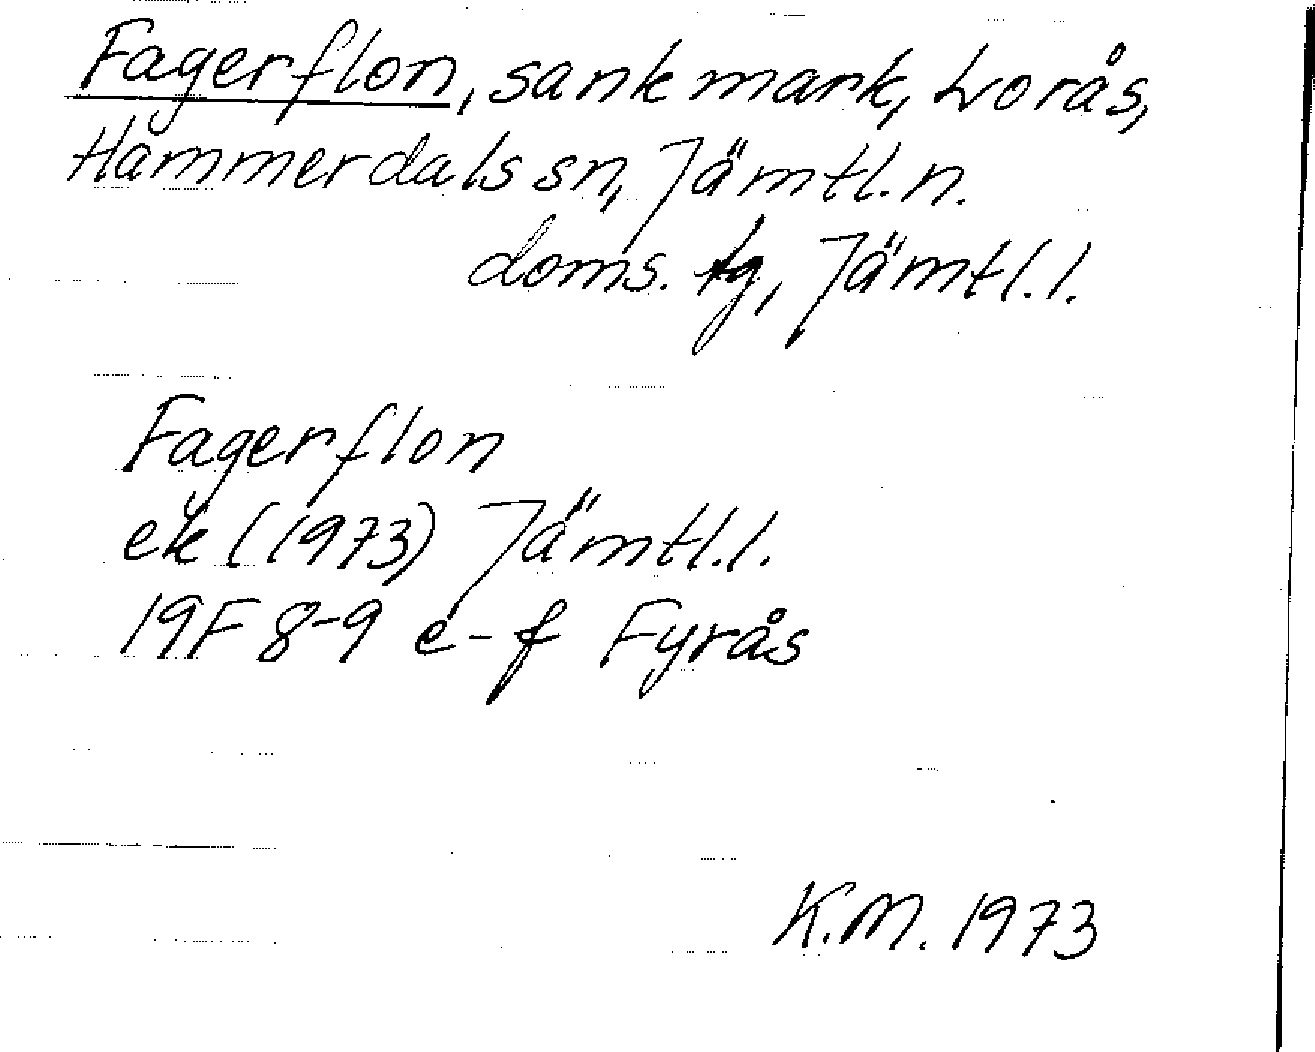 Fagerflon, sank mark, Lorås,
Hammerdals sn, Jämtl. n.
doms. tg, Jämtl. l.
Fagerflon
ek (1973) Jämtl. l.
19F 8-9 e-f Fyrås
K.M. 1973